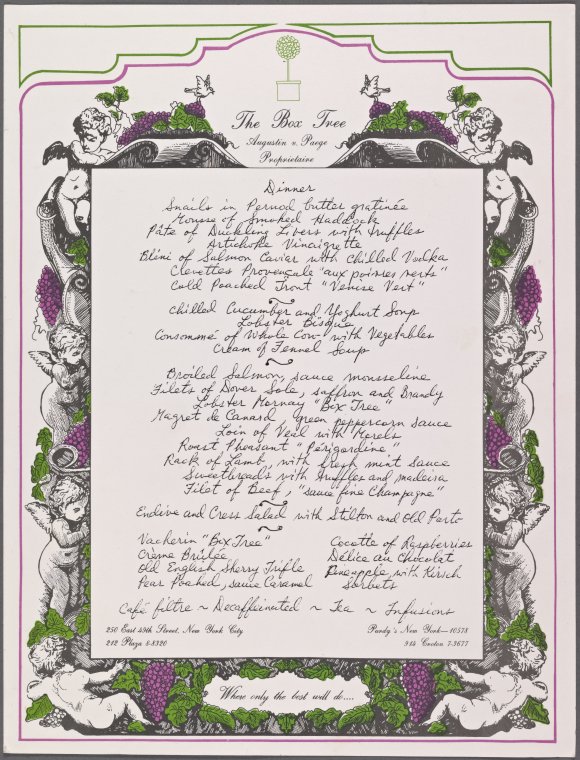 The Box Tree
Augustin v. Paege
Proprietaire
Dinner
Snails in Pernod butter gratinée
Mousse of Smoked Haddock
Pâte of Duckling Livers with truffles
Artichoke Vinaigrette
Blini of Salmon Caviar with chilled Vodka
Crevettes Provençale "aux poivres verts"
Cold Poached Trout "Venise Vert"
Chilled Cucumber and Yoghurt Soup
Lobster Bisque
Consommé of "Whole Cow" with Vegetables
Cream of Fennel Soup
Broiled Salmon, sauce mousseline
Filets of Dover Sole, saffron and Brandy
Lobster Mornay "Box Tree"
Magret de Canard green peppercorn sauce
Loin of Veal with Morels
Roast Pheasant "Périgordine"
Rack of Lamb, with fresh mint sauce
Sweetbreads with truffles and madeira
Filet of Beef, "sauce fine Champagne"
Endive and Cress Salad with Stilton and Old Porto
Vacherin "Box Tree"
Crème Brûlée
Old English Sherry Trifle
Pear Poached, sauce Caramel
Cocotte of Raspberries
Délice au Chocolat
Pineapple, with Kirsch
Sorbets
Café filtre ~ Decaffeinated ~ Tea ~ Infusions
250 East 49th Street, New York City
212 Plaza 8-8320
Purdy's New York—10578
914 Croton 7-3677
Where only the best will do....